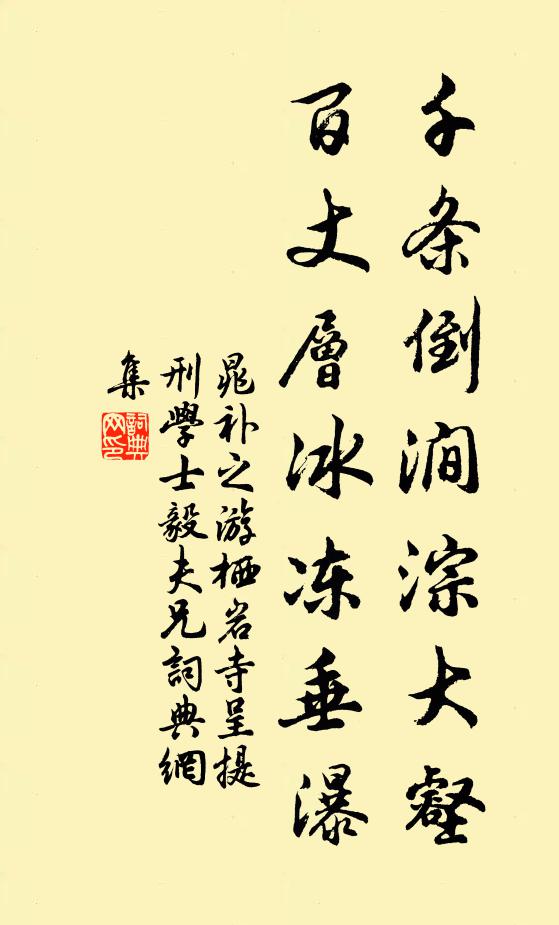 千条倒涧淙大壑
百丈層冰冻垂瀑
晁补之游栖岩寺呈提
刑學士毅夫兄詞典網
集
詞典
网印